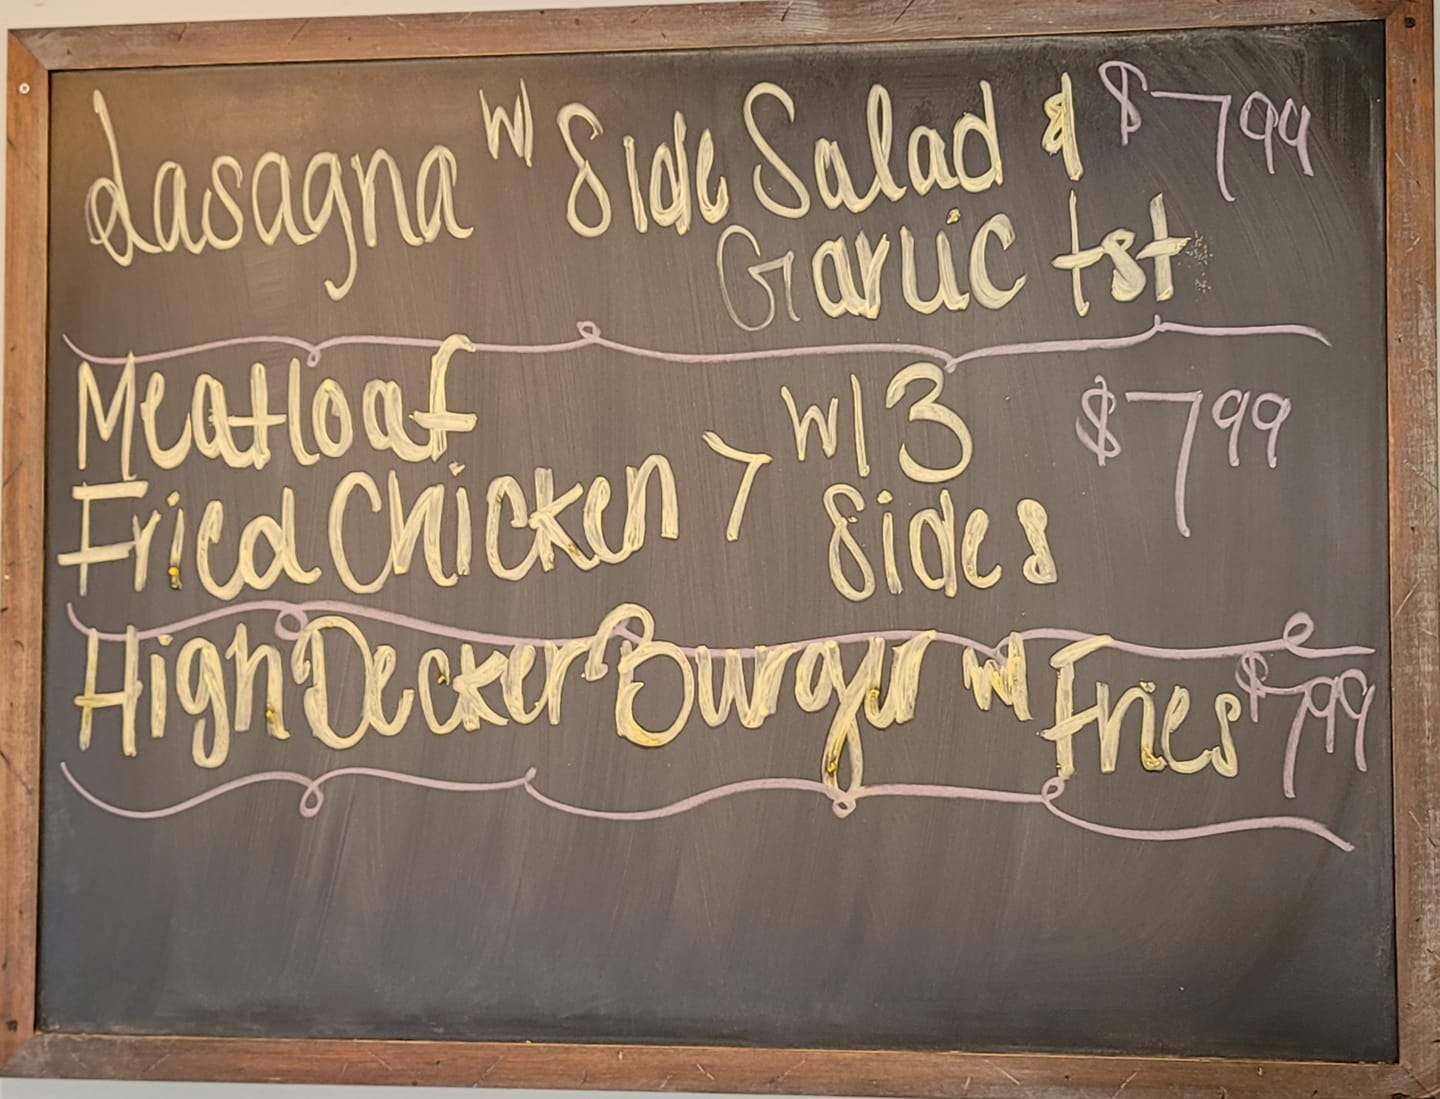 Lasagna w/ Side Salad & $7.99
Garlic tst
Meatloaf
Fried Chicken > w/ 3 $7.99
Sides
High Decker Burger w/ Fries $7.99